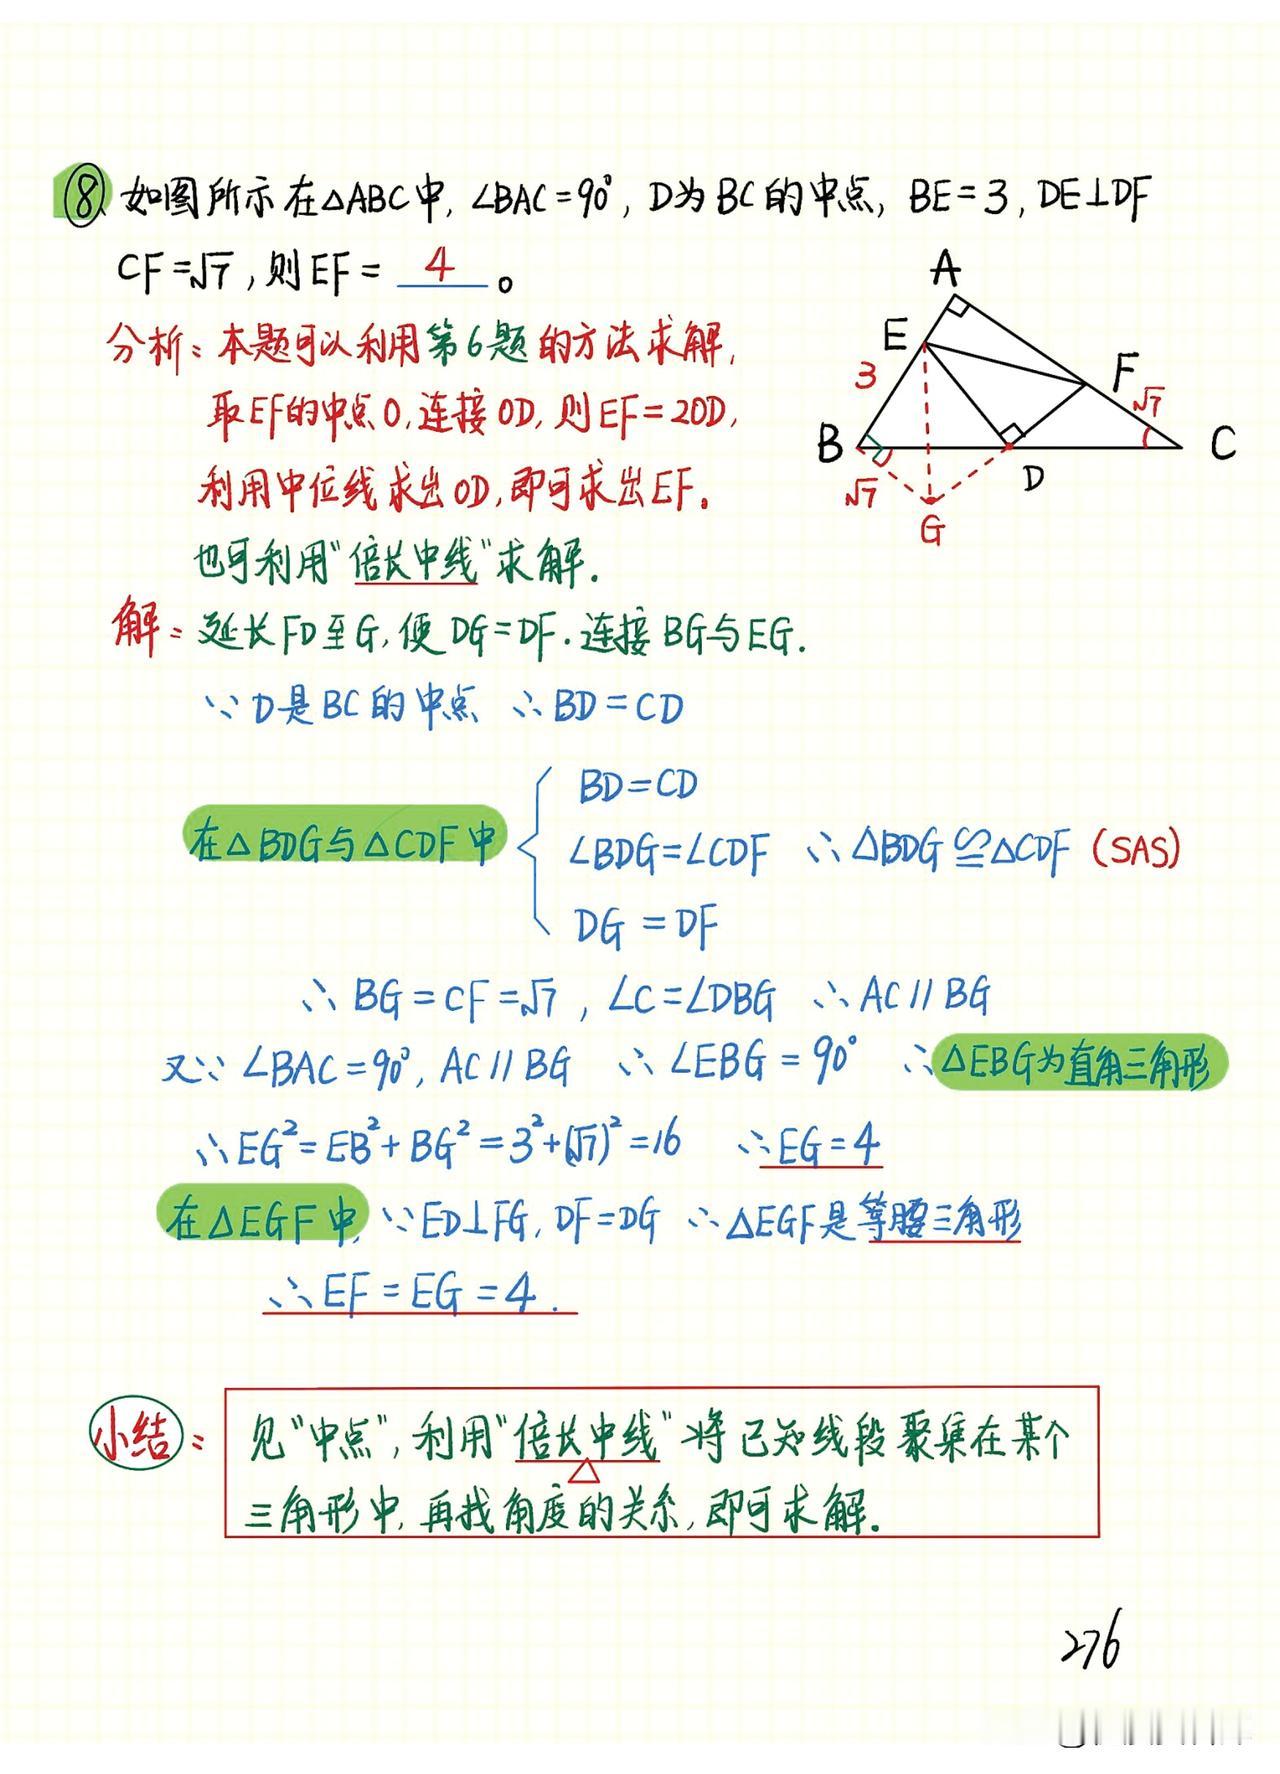 ⑧ 如图所示在△ABC中, ∠BAC=90°, D为BC的中点, BE=3, DE⊥DF
CF=√7, 则EF= 4 。
A
E
F
3
√7
B
C
D
√7
G
分析: 本题可以利用第6题的方法求解,
取EF的中点O, 连接OD, 则EF=2OD,
利用中位线求出OD, 即可求出EF.
也可利用"倍长中线"求解.
解: 延长FD至G, 使DG=DF. 连接BG与EG.
∵D是BC的中点 ∴BD=CD
在△BDG与△CDF中
BD=CD
∠BDG=∠CDF ∴△BDG≌△CDF (SAS)
DG=DF
∴BG=CF=√7, ∠C=∠DBG ∴AC∥BG
又∵∠BAC=90°, AC∥BG ∴∠EBG=90° ∴△EBG为直角三角形
∴EG²=EB²+BG²=3²+(√7)²=16 ∴EG=4
在△EGF中, ∵ED⊥FG, DF=DG ∴△EGF是等腰三角形
∴EF=EG=4.
小结:
见"中点", 利用"倍长中线"将已知线段聚集在某个
三角形中, 再找角度的关系, 即可求解.
276